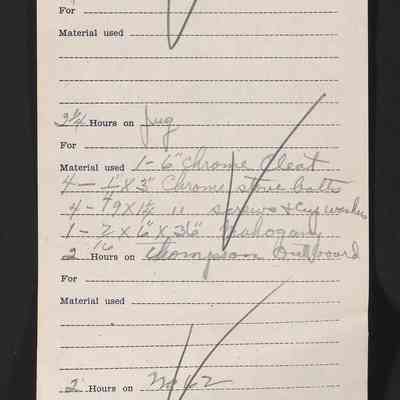 For
Material used
3 3/4 Hours on Jug
For
Material used 1 - 6" Chrome Cleat
4 - 1/4" X 3" Chrome stove bolts
4 - #9 X 1 1/4 " screws & Cup washers
1 - 7/16 X 6" X 36" Mahogany
2 Hours on Thompson Outboard
For
Material used
2 Hours on